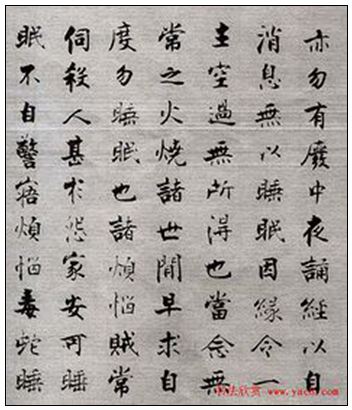 亦勿有廢中夜誦經以自
消息無以睡眠因緣令一
生空過無所得也當念無
常之火燒諸世間早求自
度勿睡眠也諸煩惱賊常
伺殺人甚於怨家安可睡
眠不自警寤煩惱毒蛇睡
书法欣赏
www.yac8.com